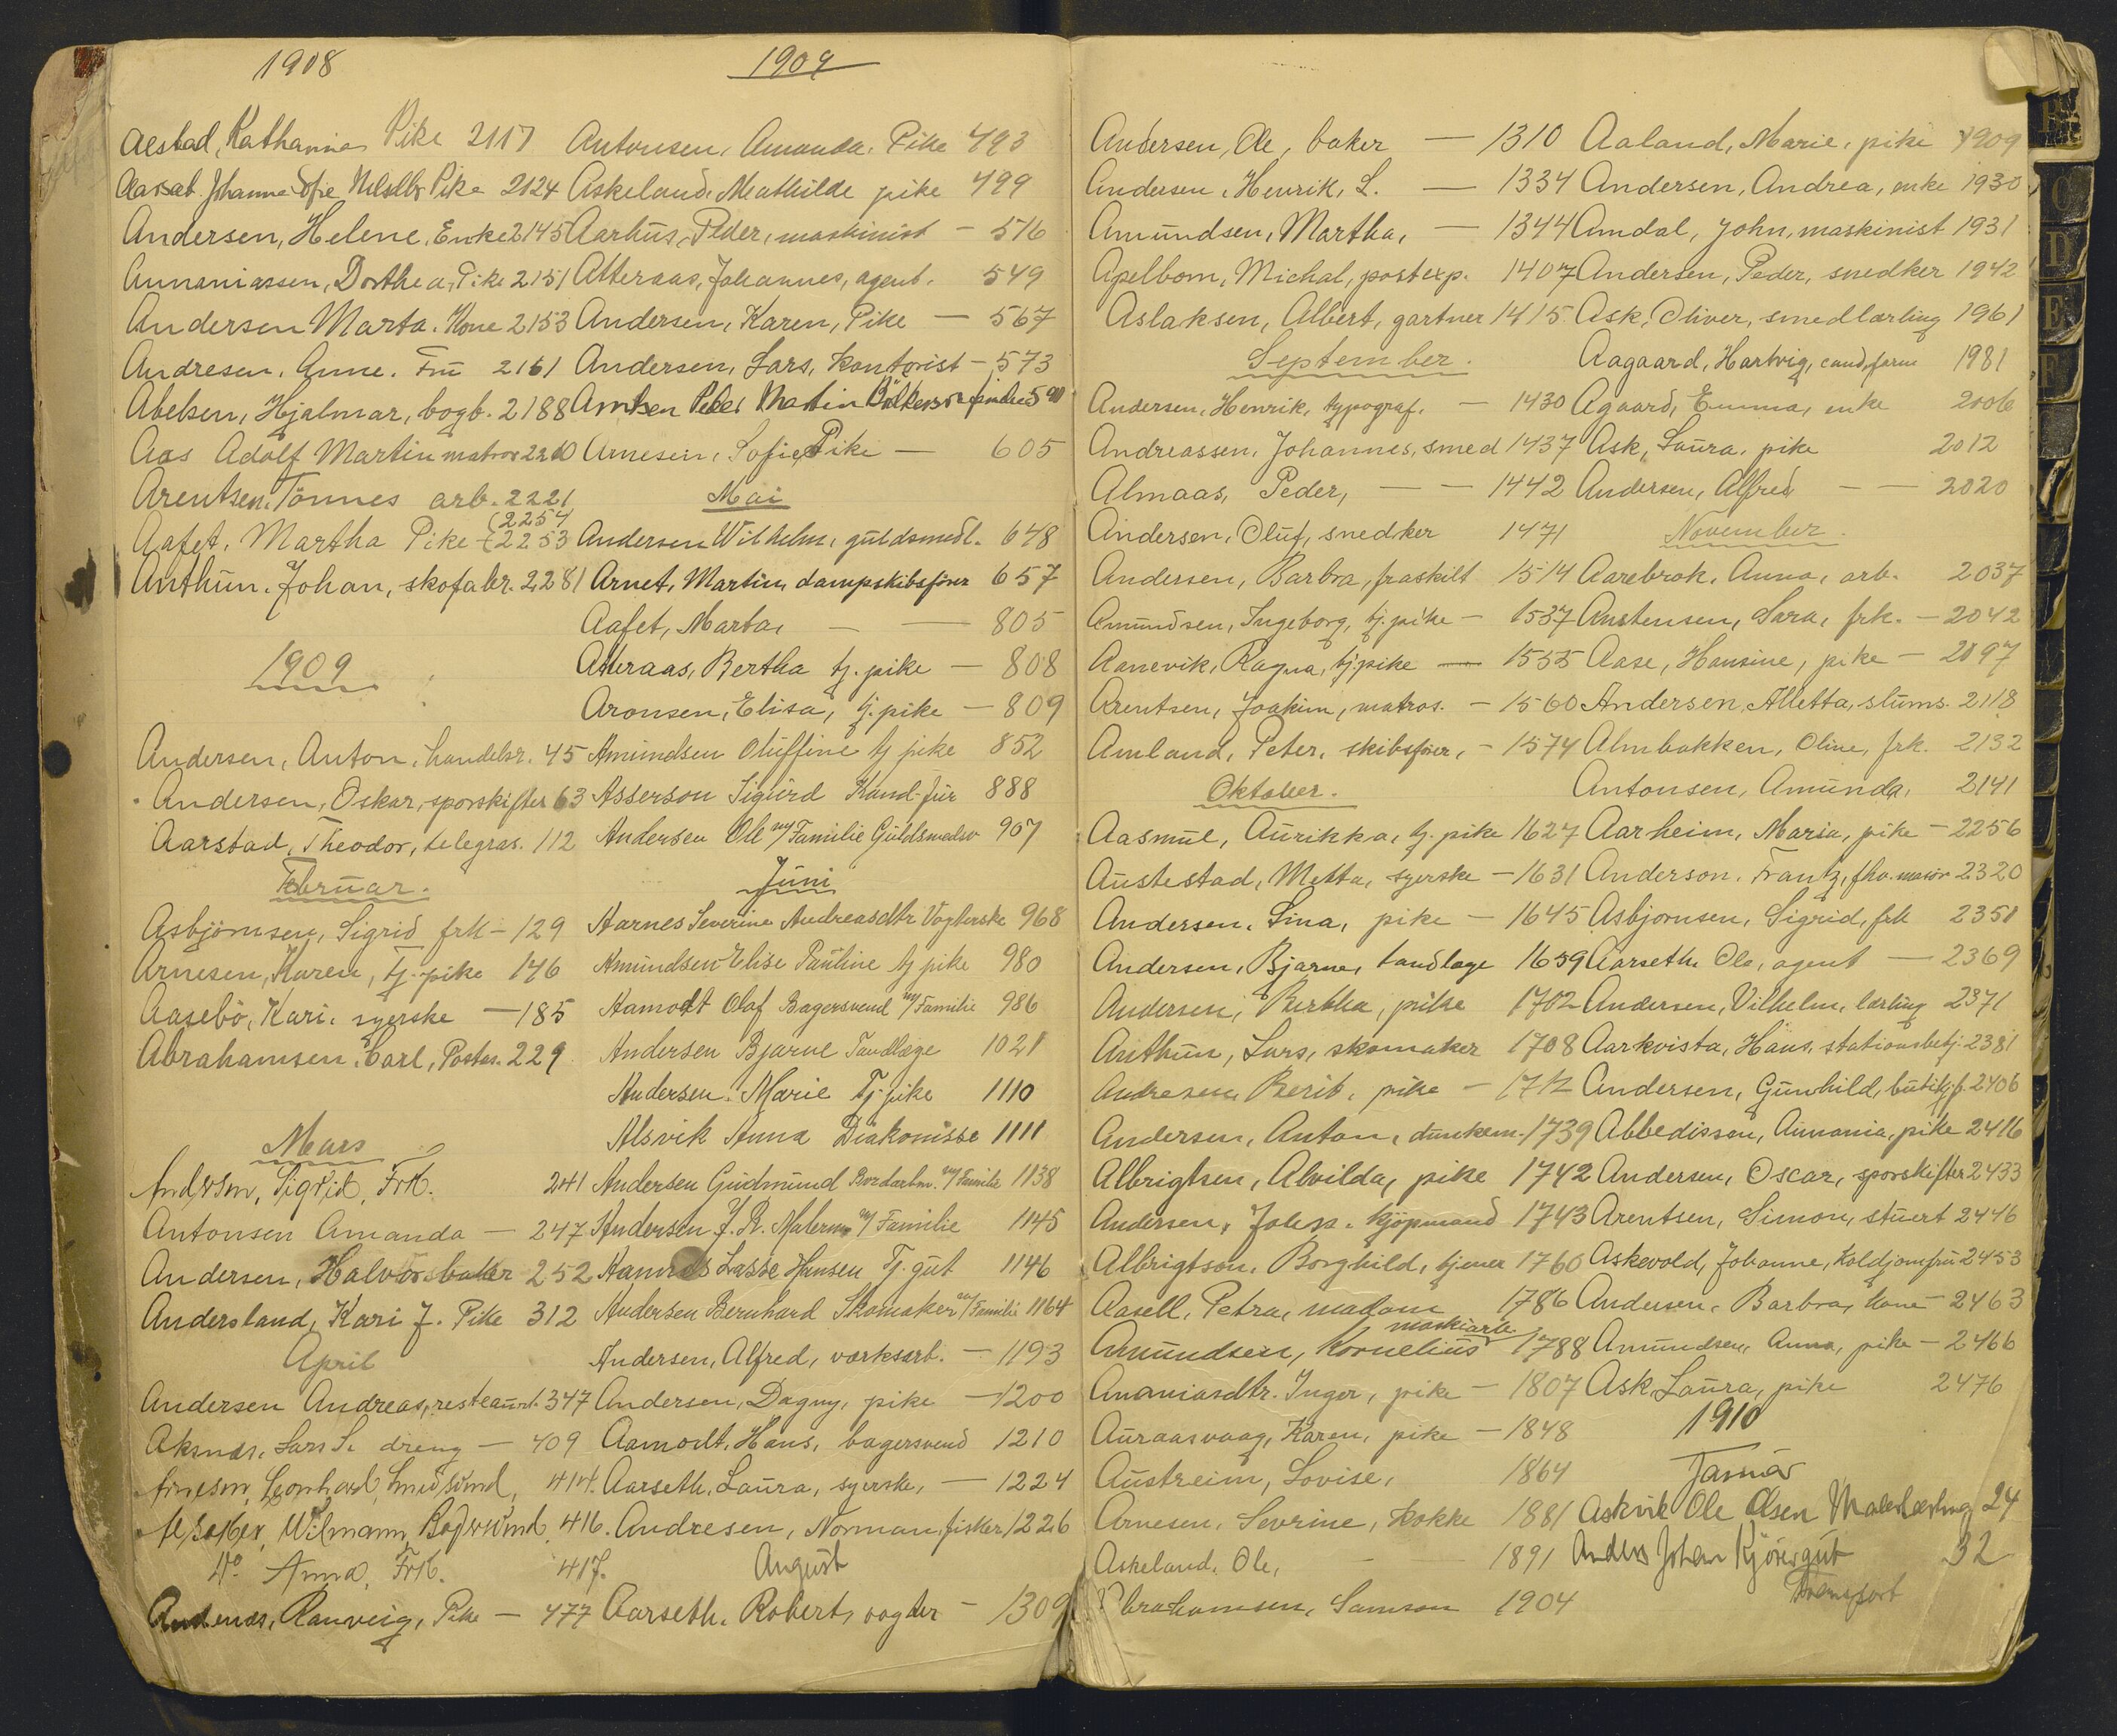 1908
Aestad, Kathanna Pike 2117
Johanne Sofie Pike 2124
Andersen, Helene, Enke 2145
Annaniassen, Dorthea, Pike 2151
Andersen Marta. Kone 2153
Andresen. Anne. Frü 2161
Abelsen, Hjalmar, bogb. 2188
Aas Adolf Martin matros 2210
Arentsen, Tönnes arb. 2221
(2254
Aafet. Martha Pike - (2253
Anthün. Johan, skofabr. 2281
1909
Andersen, Anton, handelsr. 45
Andersen, Oskar, sporskifter 63
Aarstad, Theodor, telegras. 112
Februar.
Asbjörnsen, Sigrid frk - 129
Arnesen, Karen, tj. pike 146
Aasebö, Kari, syerske — 185
Abrahamsen. Carl, Postas. 229
Mars
Anderson, Sigrid, Frk. 241
Antonsen Amanda — 247
Andersen, Halvor baker 252
Andersland, Kari J. Pike 312
April
Andersen Andreas, restaurt. 347
Aksnæs, Lars S. dreng — 409
Arnesen, Leonhard, Smedsvend, 414.
Wilmann, 416.
Do Anna, Frk. 417.
Andenæs, Ranveig, Pike — 477
1909
Antonsen, Amanda. Pike 493
Askeland, Mathilde pike 499
Aarhus, Peder, maskinist - 516
Atteraas, Johannes, agent. 549
Andersen, Karen, Pike — 567
Andersen, Lars, kontorist - 573
Amsen Peder Martin
Arnesen, Sofie, Pike — 605
Mai
Andersen Wilhelm, güldsmedl. 648
Arnet, Martin, dampskibsförer 657
Aafet, Marta, — — 805
Atteraas, Bertha tj. pike — 808
Aronsen, Elisa, tj. pike — 809
Amündsen Olüffine tj pike 852
Asserson Sigürd Kand. jür 888
Andersen Ole m/ Familie Güldsmedsv 907
Jüni
Aarnes Severine Andreasdtr Vogterske 968
Amündsen Elise Paüline tj pike 980
Aamodt Olaf Bagersvend m/Familie 986
Andersen Bjarne Tandlæge 1021
Andersen. Marie Tj. pike 1110
Alsvik Anna Diakonisse 1111
Andersen Güdmünd Bordarbm. m/Familie 1138
Andersen J. R. Malerm m/ Familie 1145
Lasse Hansen Tj. güt 1146
Andersen Bernhard Skomaker m/Familie 1164
Andersen, Alfred, værksarb. — 1193
Andersen, Dagny, pike — 1200
Aamodt, Hans, bagersvend 1210
Aarseth, Laüra, syerske, — 1224
Andresen, Norman, fisker, 1226
August
Aarseth. Robert, vogter - 1309
Andersen, Ole, baker — 1310
Andersen, Henrik, L. — 1334
Amundsen, Martha, — 1344
Apelbom, Michal, postexp. 1407
Aslaksen, Albert, gartner 1415
September.
Andersen, Henrik, typograf. — 1430
Andreassen, Johannes, smed 1437
Almaas, Peder, — — 1442
Andersen, Olüf, snedker 1471
Andersen, Barbra, fraskilt 1514
Amündsen, Ingeborg, tj. pike — 1537
Aanevik, Ragna, tj. pike — 1555
Arentsen, Joakim, matros. - 1560
Amland, Peter, skibsförer, - 1574
Oktober.
Aasmül, Aürikka, tj. pike 1627
Aüstestad, Metta, syerske — 1631
Andersen, Lina, pike — 1645
Andersen, Bjarne, tandlæge 1659
Andersen, Bertha, pike 1702
Anthün, Lars, skomaker 1708
Andresen Berit, pike — 1712
Andersen, Anton, 1739
Albrigtsen, Alvilda, pike 1742
Andersen, Johs. kjöpmand 1743
Albrigtson, Borghild, tjener 1760
Aasell, Petra, madam 1786
maskiarb.
Amündsen, Kornelius 1788
Ananiasdtr. Inger, pike — 1807
Aüraasvaag, Karen, pike — 1848
Aüstreim, Lovise, 1864
Arnesen, Sevrine, kokke 1881
Askeland, Ole, — — 1891
Abrahamsen, Samson 1904
Aaland, Marie, pike 1909
Andersen, Andrea, enke 1930
Amdal, John, maskinist 1931
Andersen, Peder, snedker 1942
Ask, Oliver, smedlærling 1961
Aagaard, Hartvig, cand. farm 1981
Agaard, Emma, enke 2006
Ask, Laüra, pike 2012
Andersen, Alfred — — 2020
November.
Aarebrok, Anna, arb. 2037
Austensen, Sara, frk. — 2042
Aase, Hansine, pike — 2097
Andersen, Alletta, slüms. 2118
Almbakken, Oline, frk. 2132
Antonsen, Amünda, 2141
Aarheim, Maria, pike — 2256
Anderson. Frantz, 2320
Asbjornsen, Sigrid, frk 2351
Aarseth. Ole, agent — 2369
Andersen, Vilhelm, lærling 2371
Aarkvista, Hans, stationsbetj. 2381
Andersen, Günhild, bütikjf. 2406
Abbedissen, Annania, pike 2416
Andersen, Oscar, sporskifter 2433
Arentsen, Simon, stüert 2446
Askevold, Johanne, koldjomfrü 2453
Andersen, Barbra, kone — 2463
Amündsen, Anna, pike — 2466
Ask, Laüra, pike 2476
1910
Januar
Askvik Ole Olsen Malerlærling 24
Anders Johan Kjöregüt 32
Transport